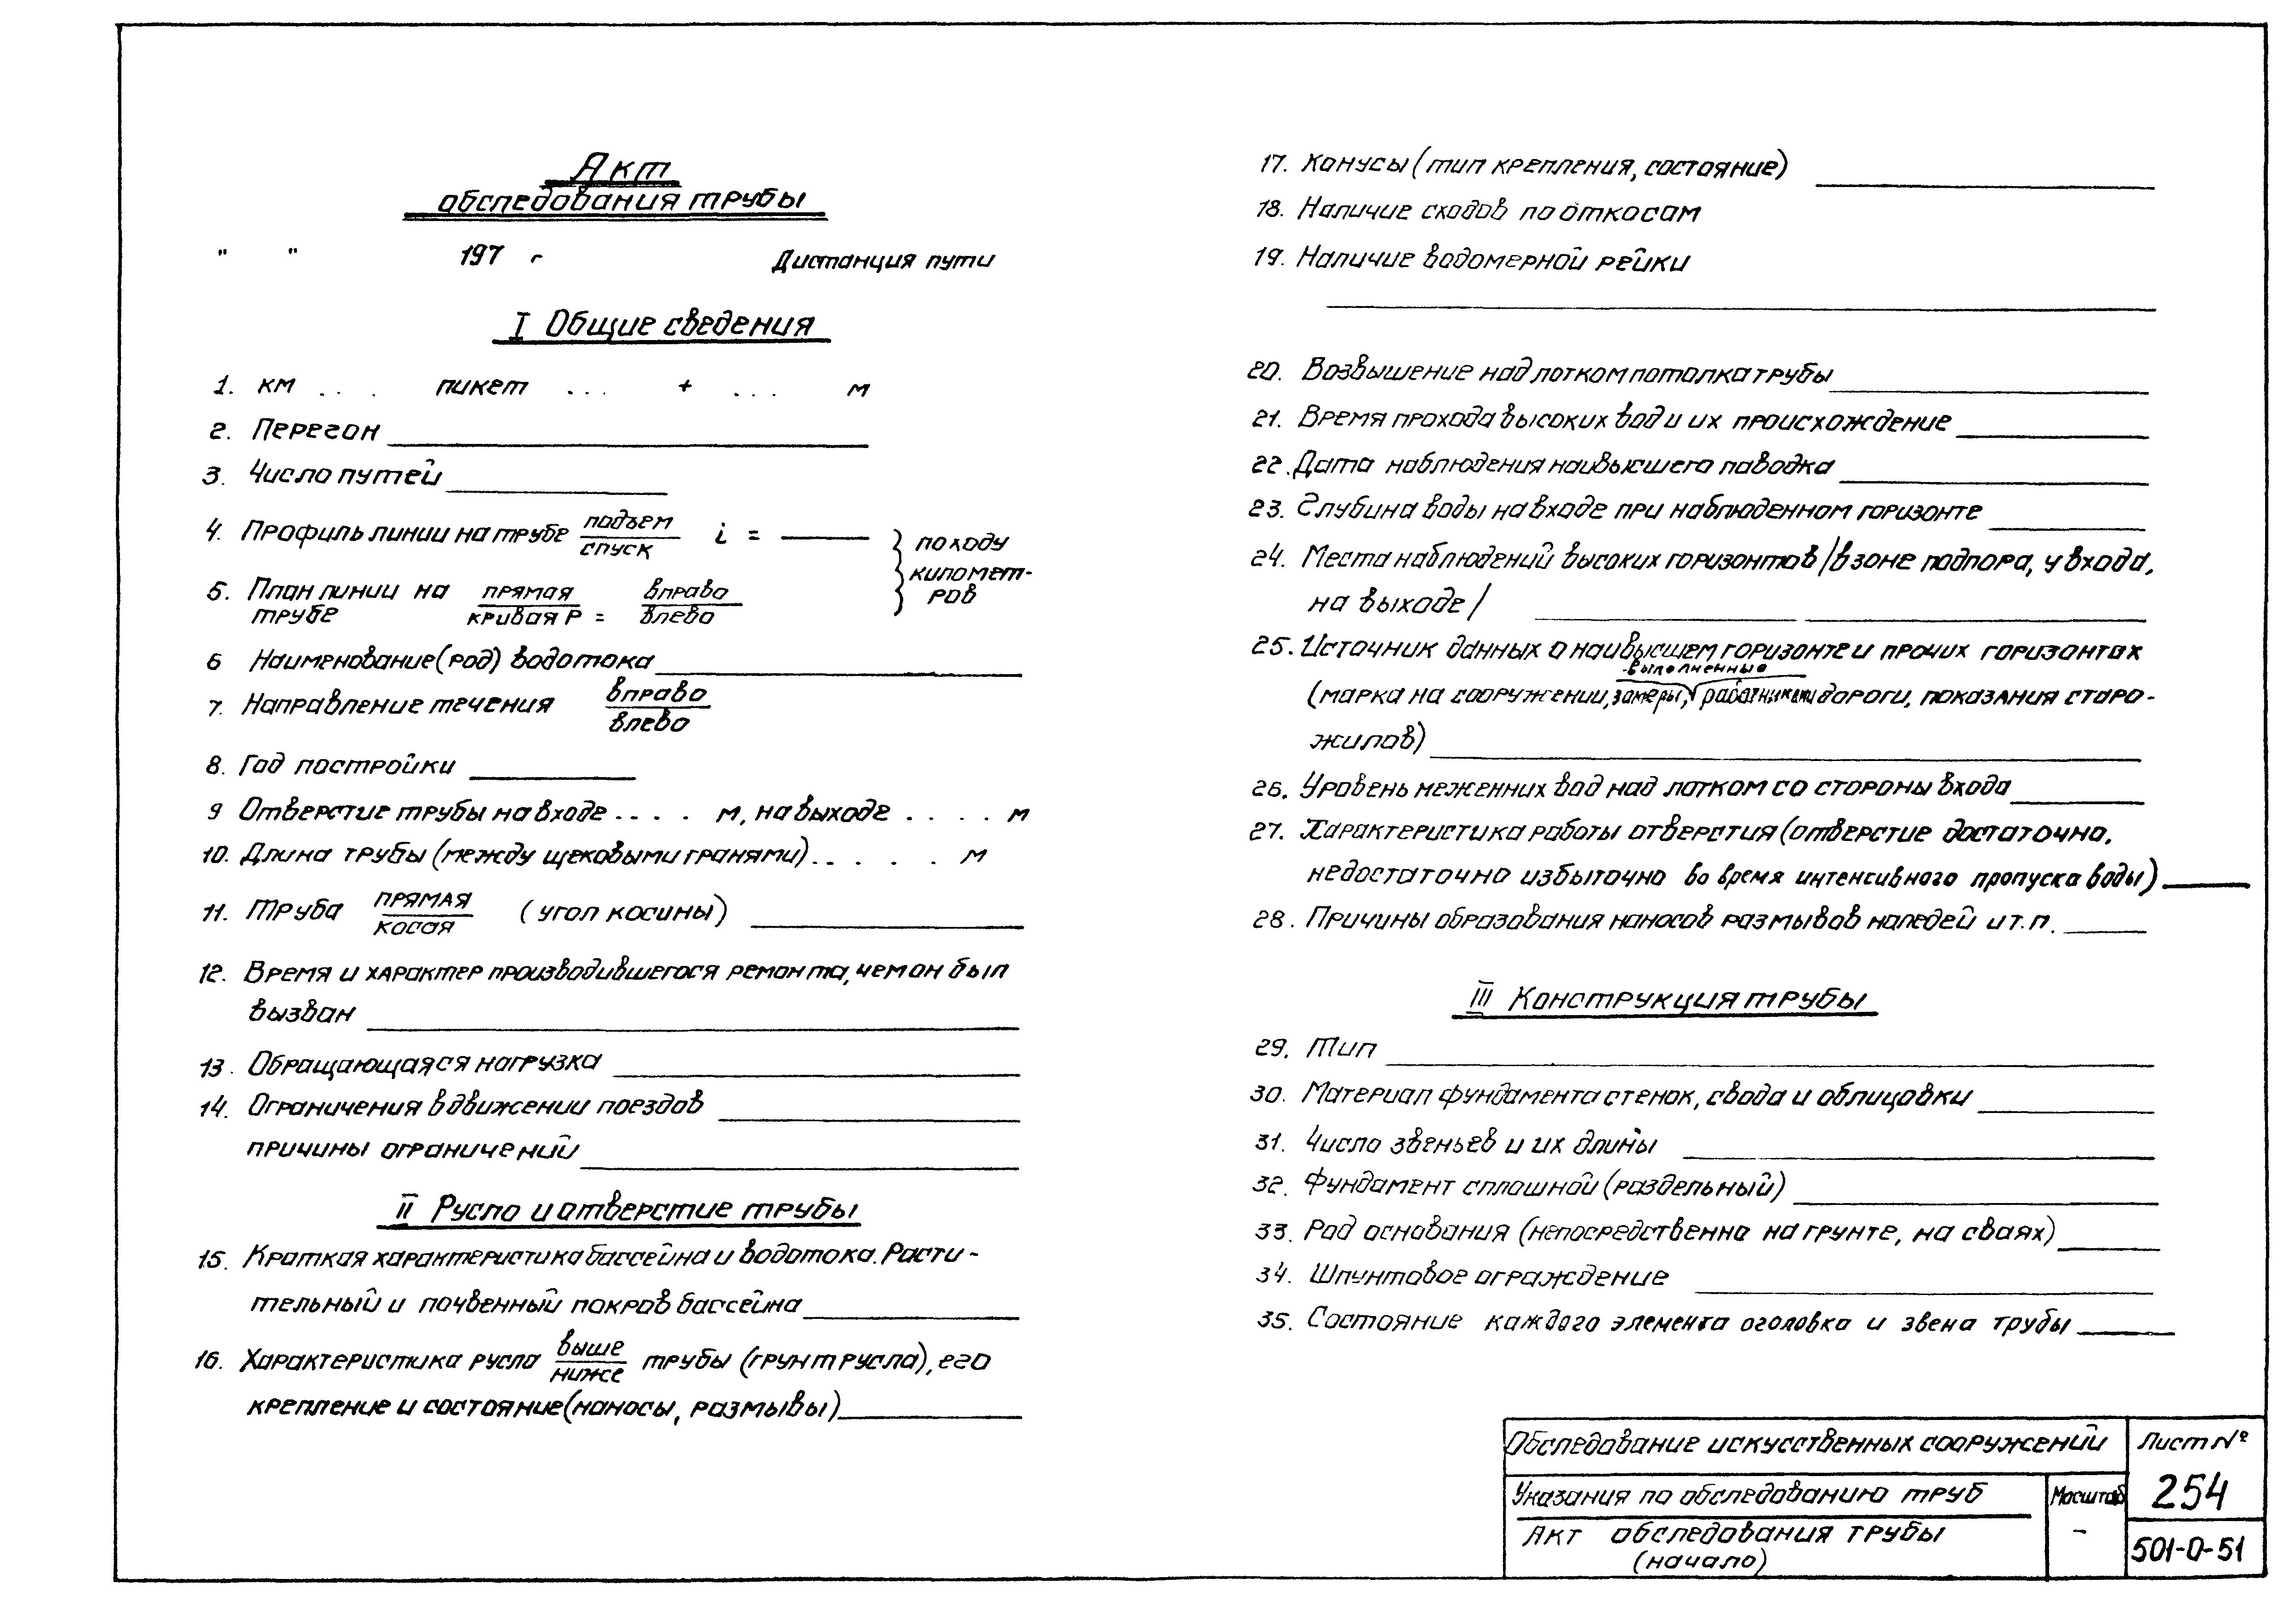 Акт
обследования трубы
" " 197 г Дистанция пути
I Общие сведения
1. км . . . пикет . . . + . . . м
2. Перегон
3. Число путей
4. Профиль линии на трубе подъем i =
спуск
по ходу
километ-
ров
5. План линии на прямая вправо
трубе кривая Р = влево
6 Наименование (род) водотока
7. Направление течения вправо
влево
8. Год постройки
9 Отверстие трубы на входе . . . . м, на выходе . . . . м
10. Длина трубы (между щековыми гранями) . . . . . м
11. Труба прямая (угол косины)
косая
12. Время и характер производившегося ремонта, чем он был
вызван
13. Обращающаяся нагрузка
14. Ограничения в движении поездов
причины ограничений
II Русло и отверстие трубы
15. Краткая характеристика бассейна и водотока. Расти-
тельный и почвенный покров бассейна
16. Характеристика русла выше трубы (грунт русла), его
ниже
крепление и состояние (наносы, размывы)
17. Конусы (тип крепления, состояние)
18. Наличие сходов по откосам
19. Наличие водомерной рейки
20. Возвышение над лотком потолка трубы
21. Время прохода высоких вод и их происхождение
22. Дата наблюдения наивысшего паводка
23. Глубина воды на входе при наблюденном горизонте
24. Места наблюдений высоких горизонтов /в зоне подпора, у входа,
на выходе/
25. Источник данных о наивысшем горизонте и прочих горизонтах
выполненные
(марка на сооружении, замеры, работниками дороги, показания старо-
жилов)
26. Уровень меженних вод над лотком со стороны входа
27. Характеристика работы отверстия (отверстие достаточно,
недостаточно избыточно во время интенсивного пропуска воды)
28. Причины образования наносов размывов наледей и т.п.
III Конструкция трубы
29. Тип
30. Материал фундамента стенок, свода и облицовки
31. Число звеньев и их длины
32. Фундамент сплошной (раздельный)
33. Род основания (непосредственно на грунте, на сваях)
34. Шпунтовое ограждение
35. Состояние каждого элемента оголовка и звена трубы
Обследование искусственных сооружений
Лист №
254
Указания по обследованию труб
Масштаб
-
Акт обследования трубы
(начало)
501-0-51